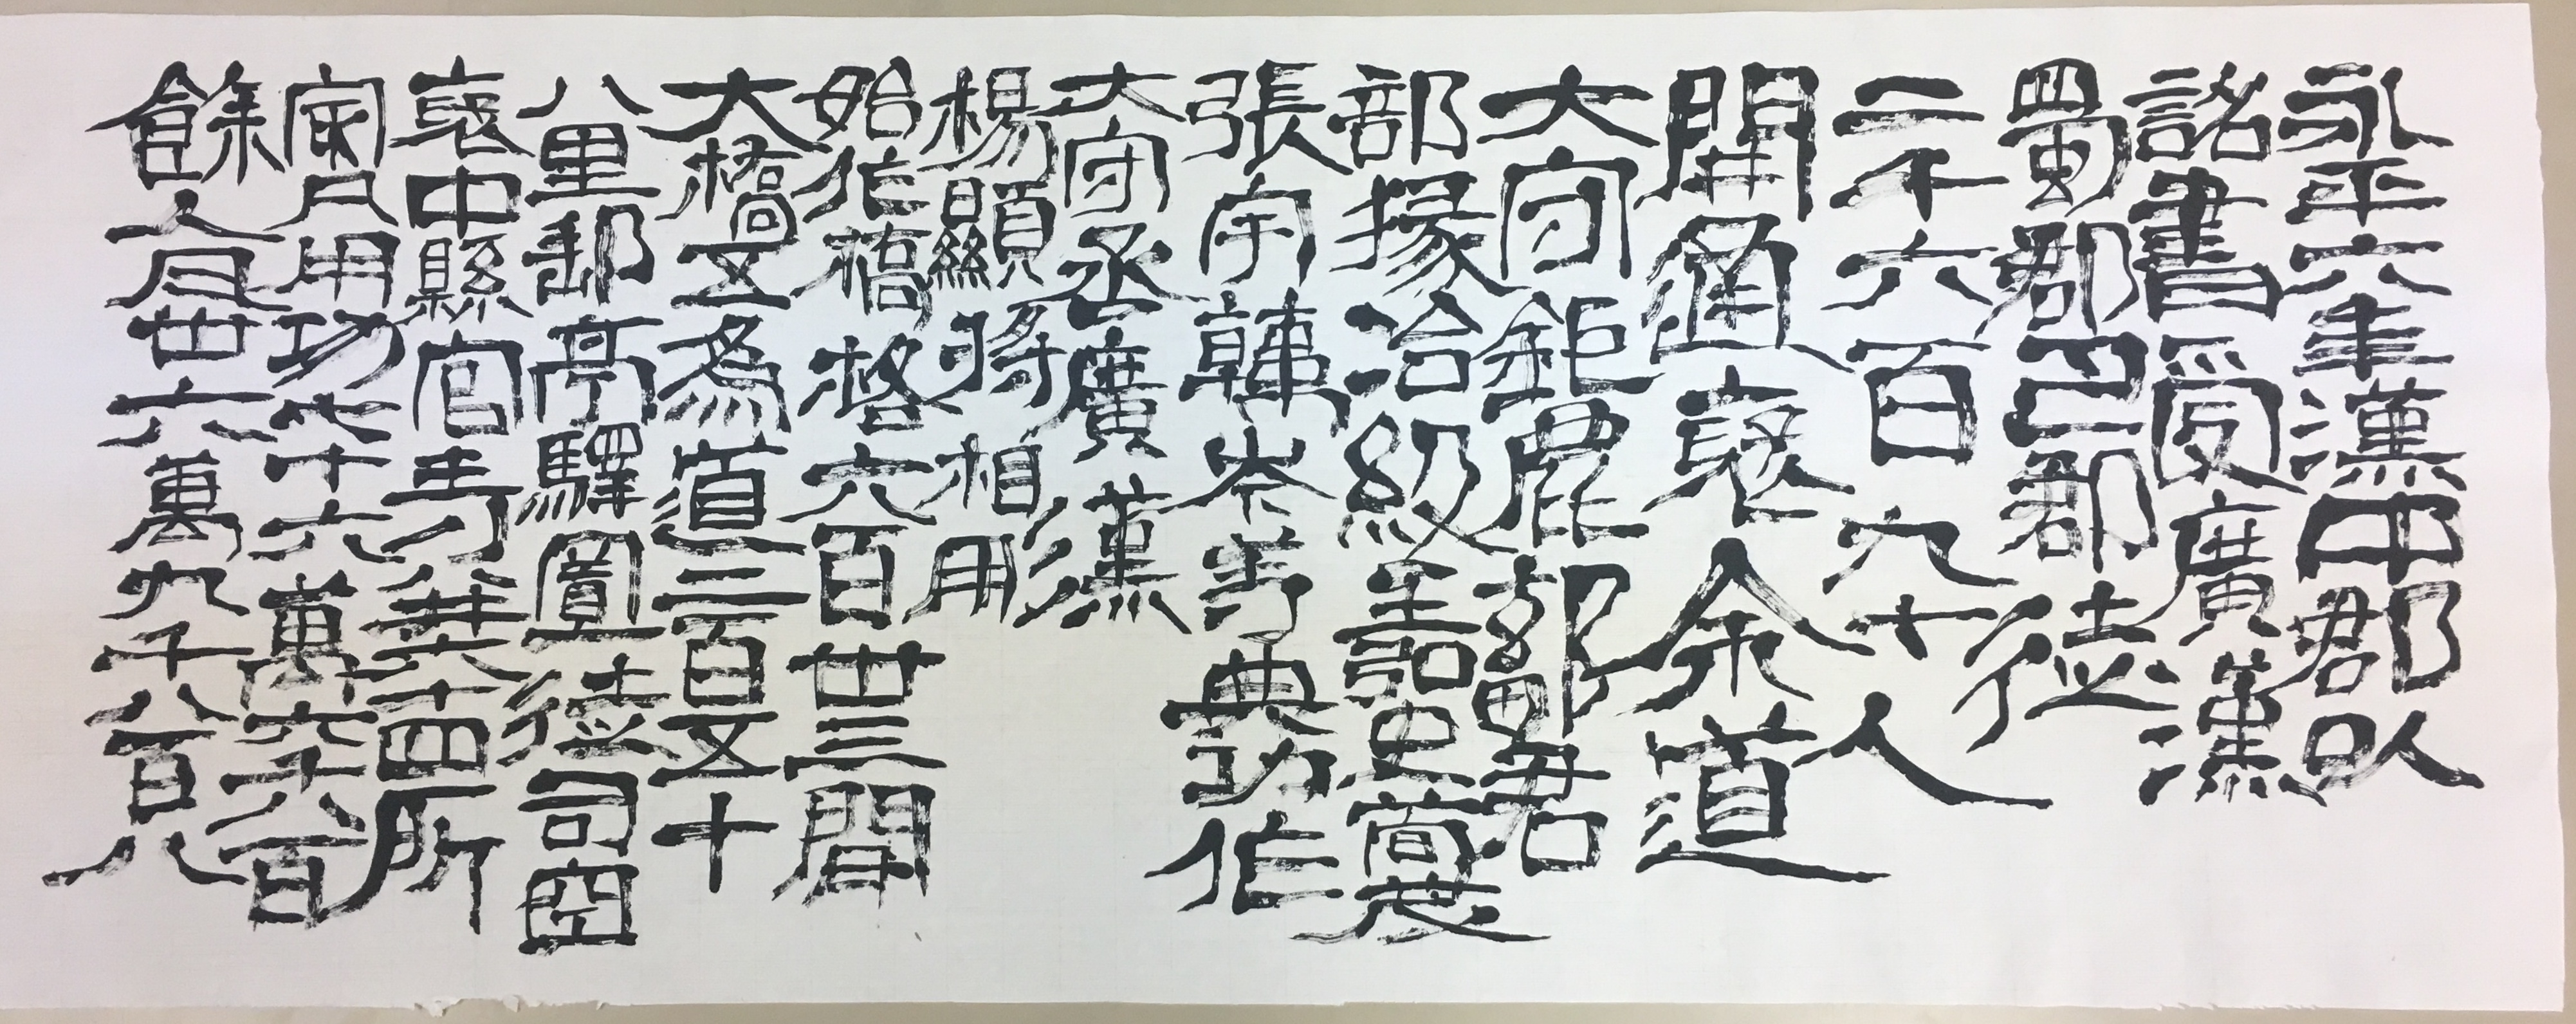 永平六年漢中郡以
詔書受廣漢
蜀郡巴郡徒
二千六百九十人
開通褒余道
大守鉅鹿鄐君
部掾治級王弘史荀茂
張宇韓岑等典功作
大守丞廣漢
楊顯將相用
始作橋格六百卅三間
大橋五為道二百五十
八里郵亭驛置徒司空
褒中縣官寺并六十四所
最凡用功七十六萬六千八百
餘人瓦卅六萬九千八百八